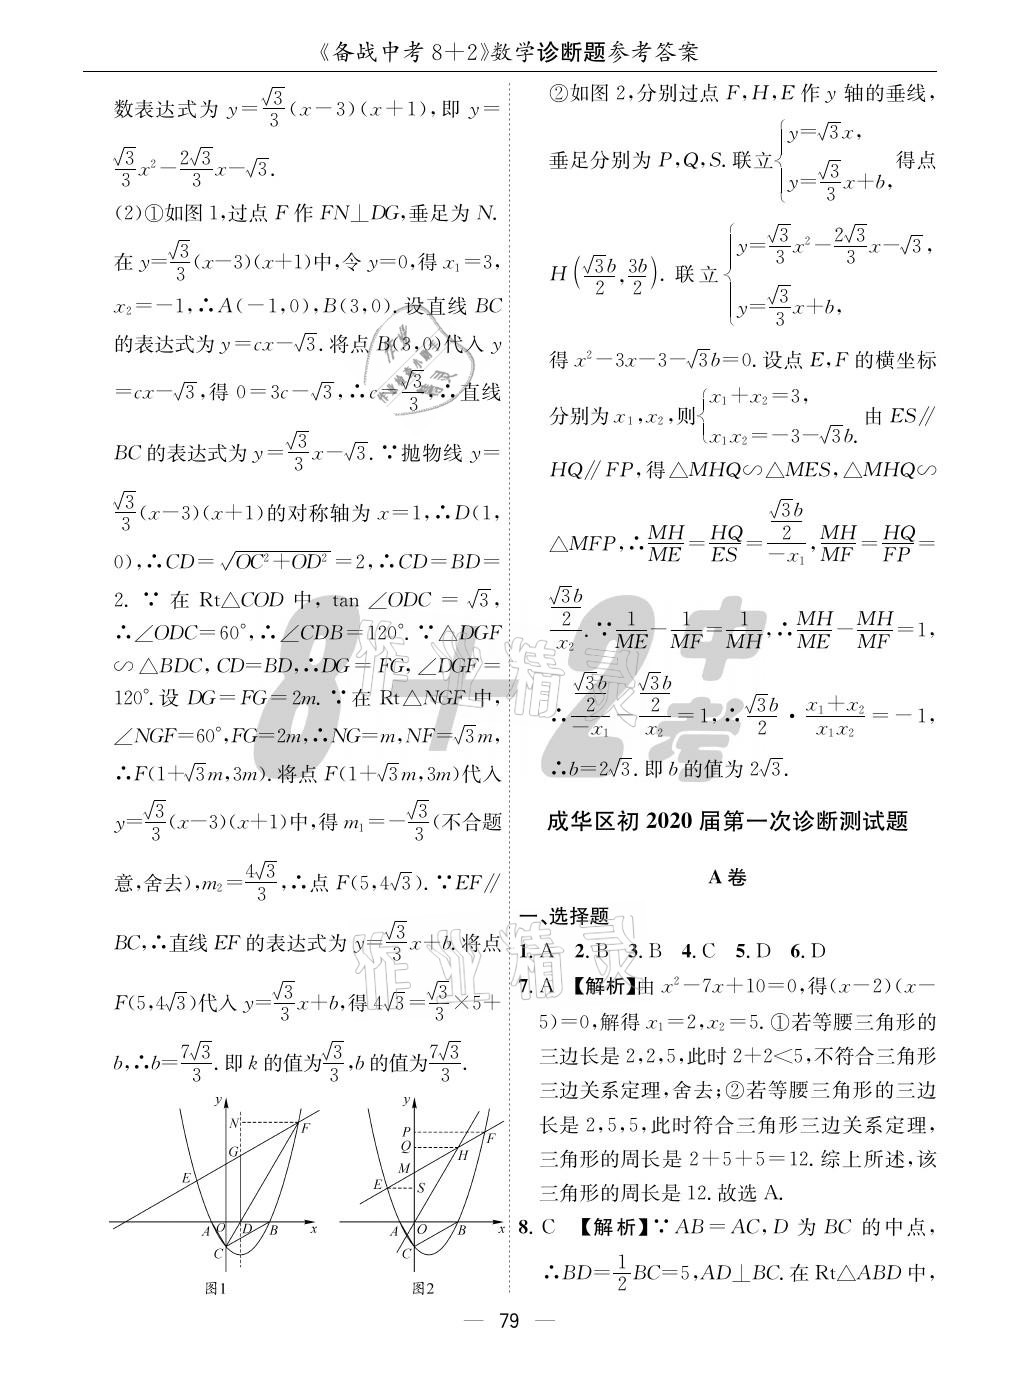 《备战中考8+2》数学诊断题参考答案
数表达式为 y=√3/3(x-3)(x+1),即 y=
√3/3x²-2√3/3x-√3.
(2)①如图1,过点F作FN⊥DG,垂足为N.
在y=√3/3(x-3)(x+1)中,令y=0,得x₁=3,
x₂=-1,∴A(-1,0),B(3,0).设直线BC
的表达式为y=cx-√3.将点B(3,0)代入y
=cx-√3,得0=3c-√3,∴c=√3/3,∴直线
BC的表达式为y=√3/3x-√3.∵抛物线y=
√3/3(x-3)(x+1)的对称轴为x=1,∴D(1,
0),∴CD=√(OC²+OD²)=2,∴CD=BD=
2. ∵ 在 Rt△COD 中, tan ∠ODC = √3,
∴∠ODC=60°,∴∠CDB=120°.∵△DGF
∽△BDC,CD=BD,∴DG=FG,∠DGF=
120°.设DG=FG=2m.∵在Rt△NGF中,
∠NGF=60°,FG=2m,∴NG=m,NF=√3m,
∴F(1+√3m,3m).将点F(1+√3m,3m)代入
y=√3/3(x-3)(x+1)中,得m₁=-√3/3(不合题
意,舍去),m₂=4√3/3,∴点F(5,4√3).∵EF∥
BC,∴直线EF的表达式为y=√3/3x+b.将点
F(5,4√3)代入y=√3/3x+b,得4√3=√3/3×5+
b,∴b=7√3/3.即k的值为√3/3,b的值为7√3/3.
y
N
F
G
E
A O D B x
C
图1
y
P
F
Q
H
M
E
S
A O B x
C
图2
②如图2,分别过点F,H,E作y轴的垂线,
垂足分别为P,Q,S.联立{y=√3x, y=√3/3x+b, 得点
H(√3b/2,3b/2).联立{y=√3/3x²-2√3/3x-√3, y=√3/3x+b,
得x²-3x-3-√3b=0.设点E,F的横坐标
分别为x₁,x₂,则{x₁+x₂=3, x₁x₂=-3-√3b. 由ES∥
HQ∥FP,得△MHQ∽△MES,△MHQ∽
△MFP,∴MH/ME=HQ/ES=(√3b/2)/(-x₁),MH/MF=HQ/FP=
(√3b/2)/x₂.∵1/ME-1/MF=1/MH,∴MH/ME-MH/MF=1,
∴(√3b/2)/(-x₁)-(√3b/2)/x₂=1,∴√3b/2·(x₁+x₂)/(x₁x₂)=-1,
∴b=2√3.即b的值为2√3.
成华区初2020届第一次诊断测试题
A卷
一、选择题
1. A 2. B 3. B 4. C 5. D 6. D
7. A 【解析】由x²-7x+10=0,得(x-2)(x-
5)=0,解得x₁=2,x₂=5.①若等腰三角形的
三边长是2,2,5,此时2+2<5,不符合三角形
三边关系定理,舍去;②若等腰三角形的三边
长是2,5,5,此时符合三角形三边关系定理,
三角形的周长是2+5+5=12.综上所述,该
三角形的周长是12.故选A.
8. C 【解析】∵AB=AC,D为BC的中点,
∴BD=1/2BC=5,AD⊥BC.在Rt△ABD中,
— 79 —
8+2中考
作业精灵
作业精灵